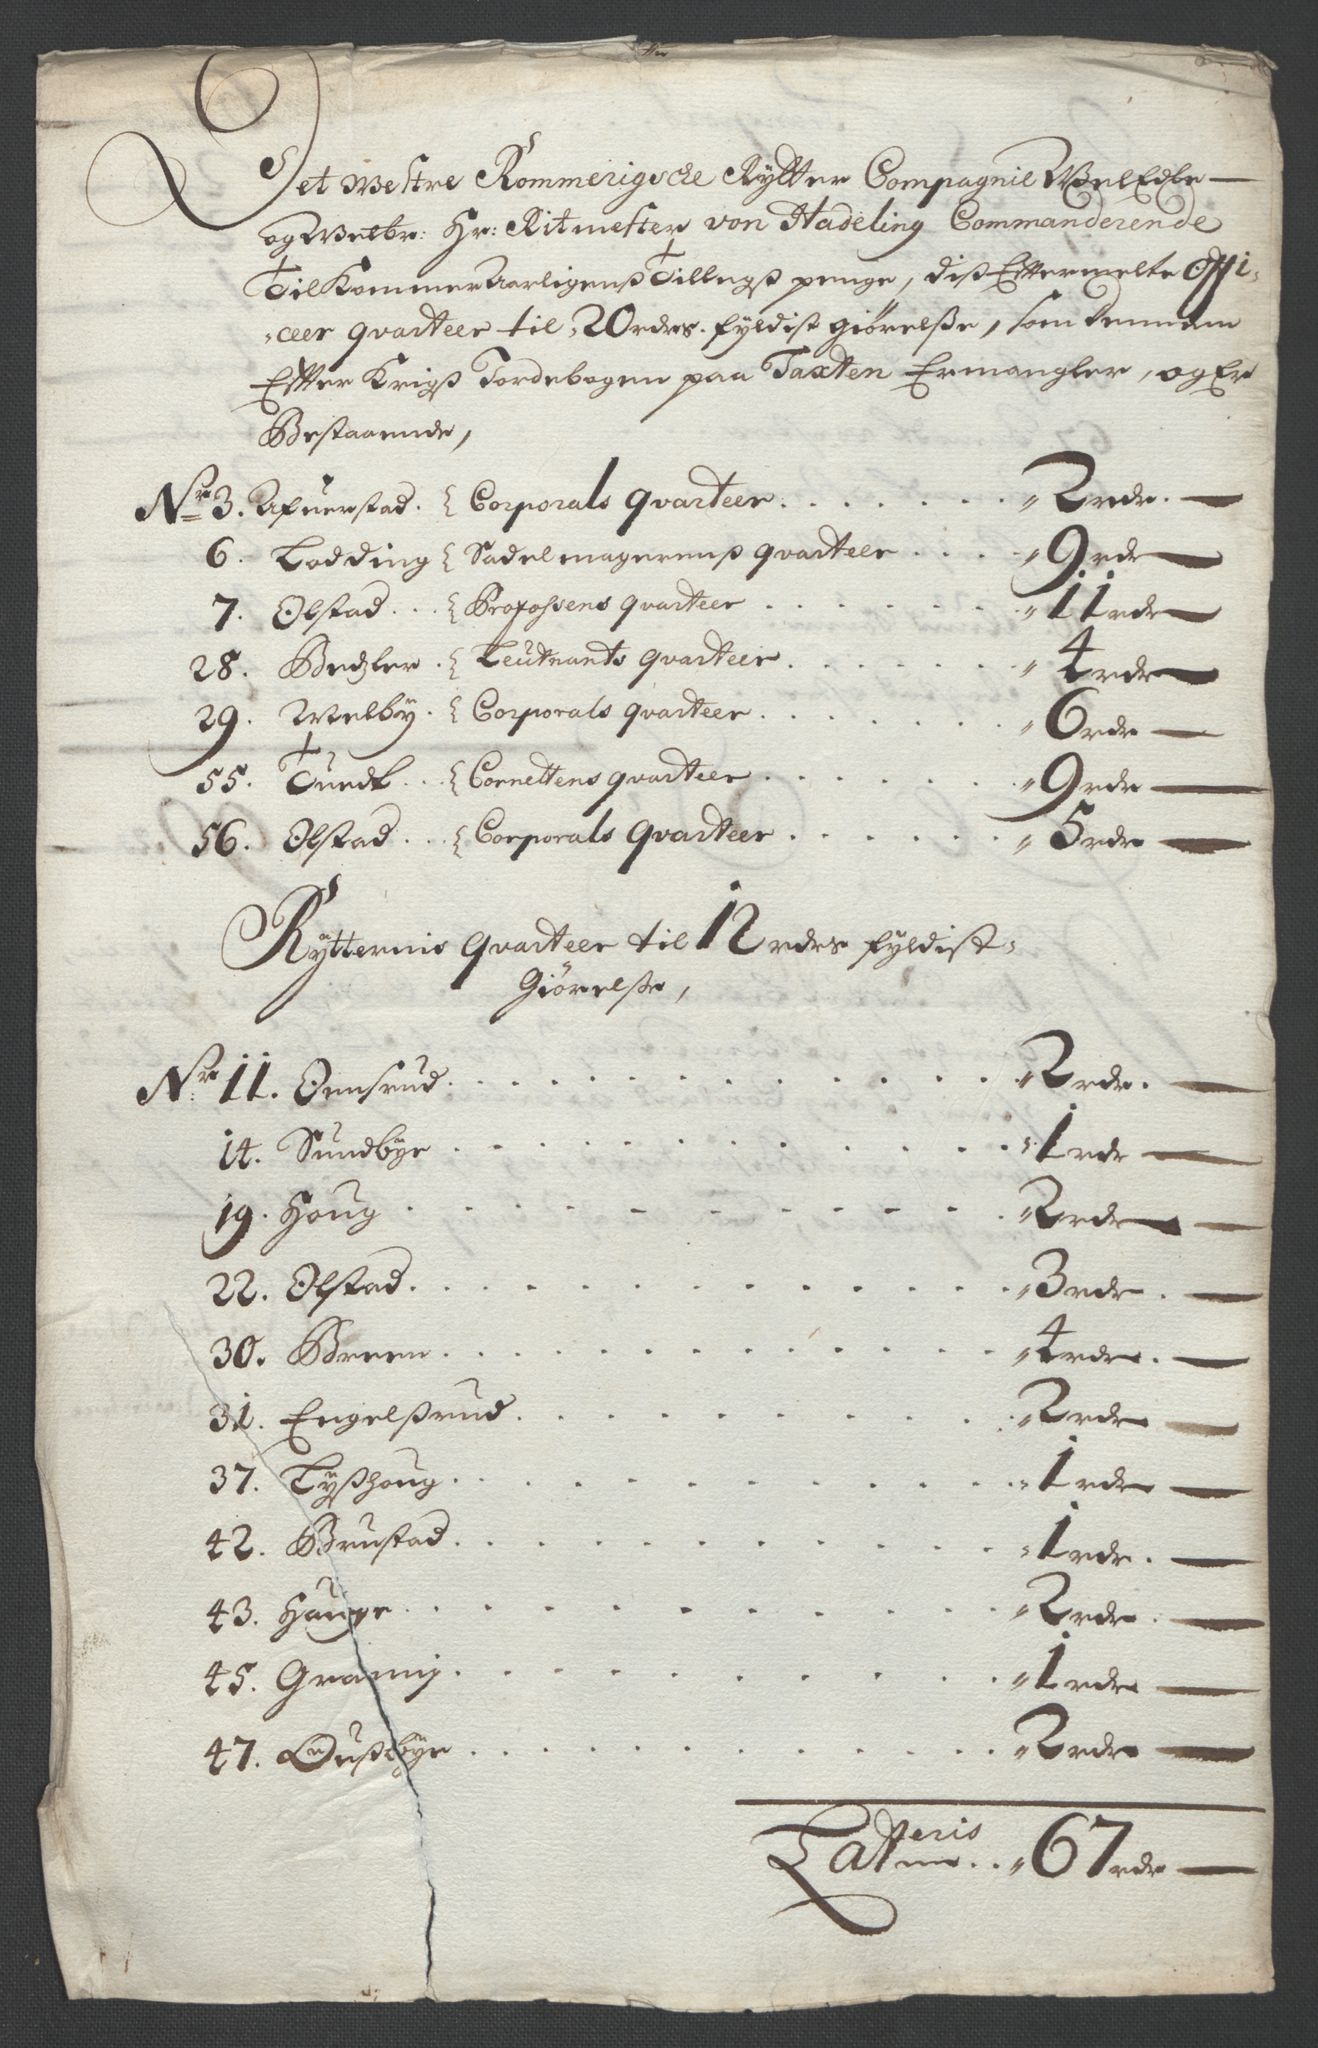 Det westre Rommerigsche Rÿtter Compagnie WelEdle
og Welbr: Hr: Ritmester von Hadeling Commanderende
Tilkommer Aarligenß Tillegß penge, diß Effter­melte Offi-
-ceer qvarteer til 20 rdrs. fyldist giørelße, som dennem
Effter Krigß Jordebogen paa Taxten Ermangler, og Er
Bestaaende,
Nr 3. Afuerstad. { Corporals qvarteer. . . . . . " 2 rdr. —
6. Lodding { Sadelmagerens qvarteer . . . . " 9 rdr —
7. Olstad . . . { Profossens qvarteer . . . . . . " 11 rdr —
28. Bedzler . { Leutnants qvarteer . . . . . . " 4 rdr —
29. Welbÿ . { Corporals qvarteer . . . . . . " 6 rdr —
55. . . . { Cornettens qvarteer . . . . . . " 9 rdr —
56. Olstad . . . { Corporals qvarteer . . . . . . " 5 rdr —
Rÿtternis qvarteer til 12 rdrs fyldist-
Giørelße,
Nr 11. Onnsrud . . . . . . " 2 rdr. —
14. Sundbye . . . . . . " 1 rdr —
19. Houg . . . . . . " 2 rdr —
22. Olstad . . . . . . " 3 rdr . —
30. Breen . . . . . . " 4 rdr . —
31. Engelßrud . . . . . . " 2 rdr —
37. Lÿßhoug . . . . . . " 1 rdr —
42. Brustad . . . . . . " 1 rdr . —
43. Hauge . . . . . . " 2 rdr . —
45. . . . . . . " 1 rdr —
47. Oußbye . . . . . . " 2 rdr —
Latteris . . " 67 rdr —